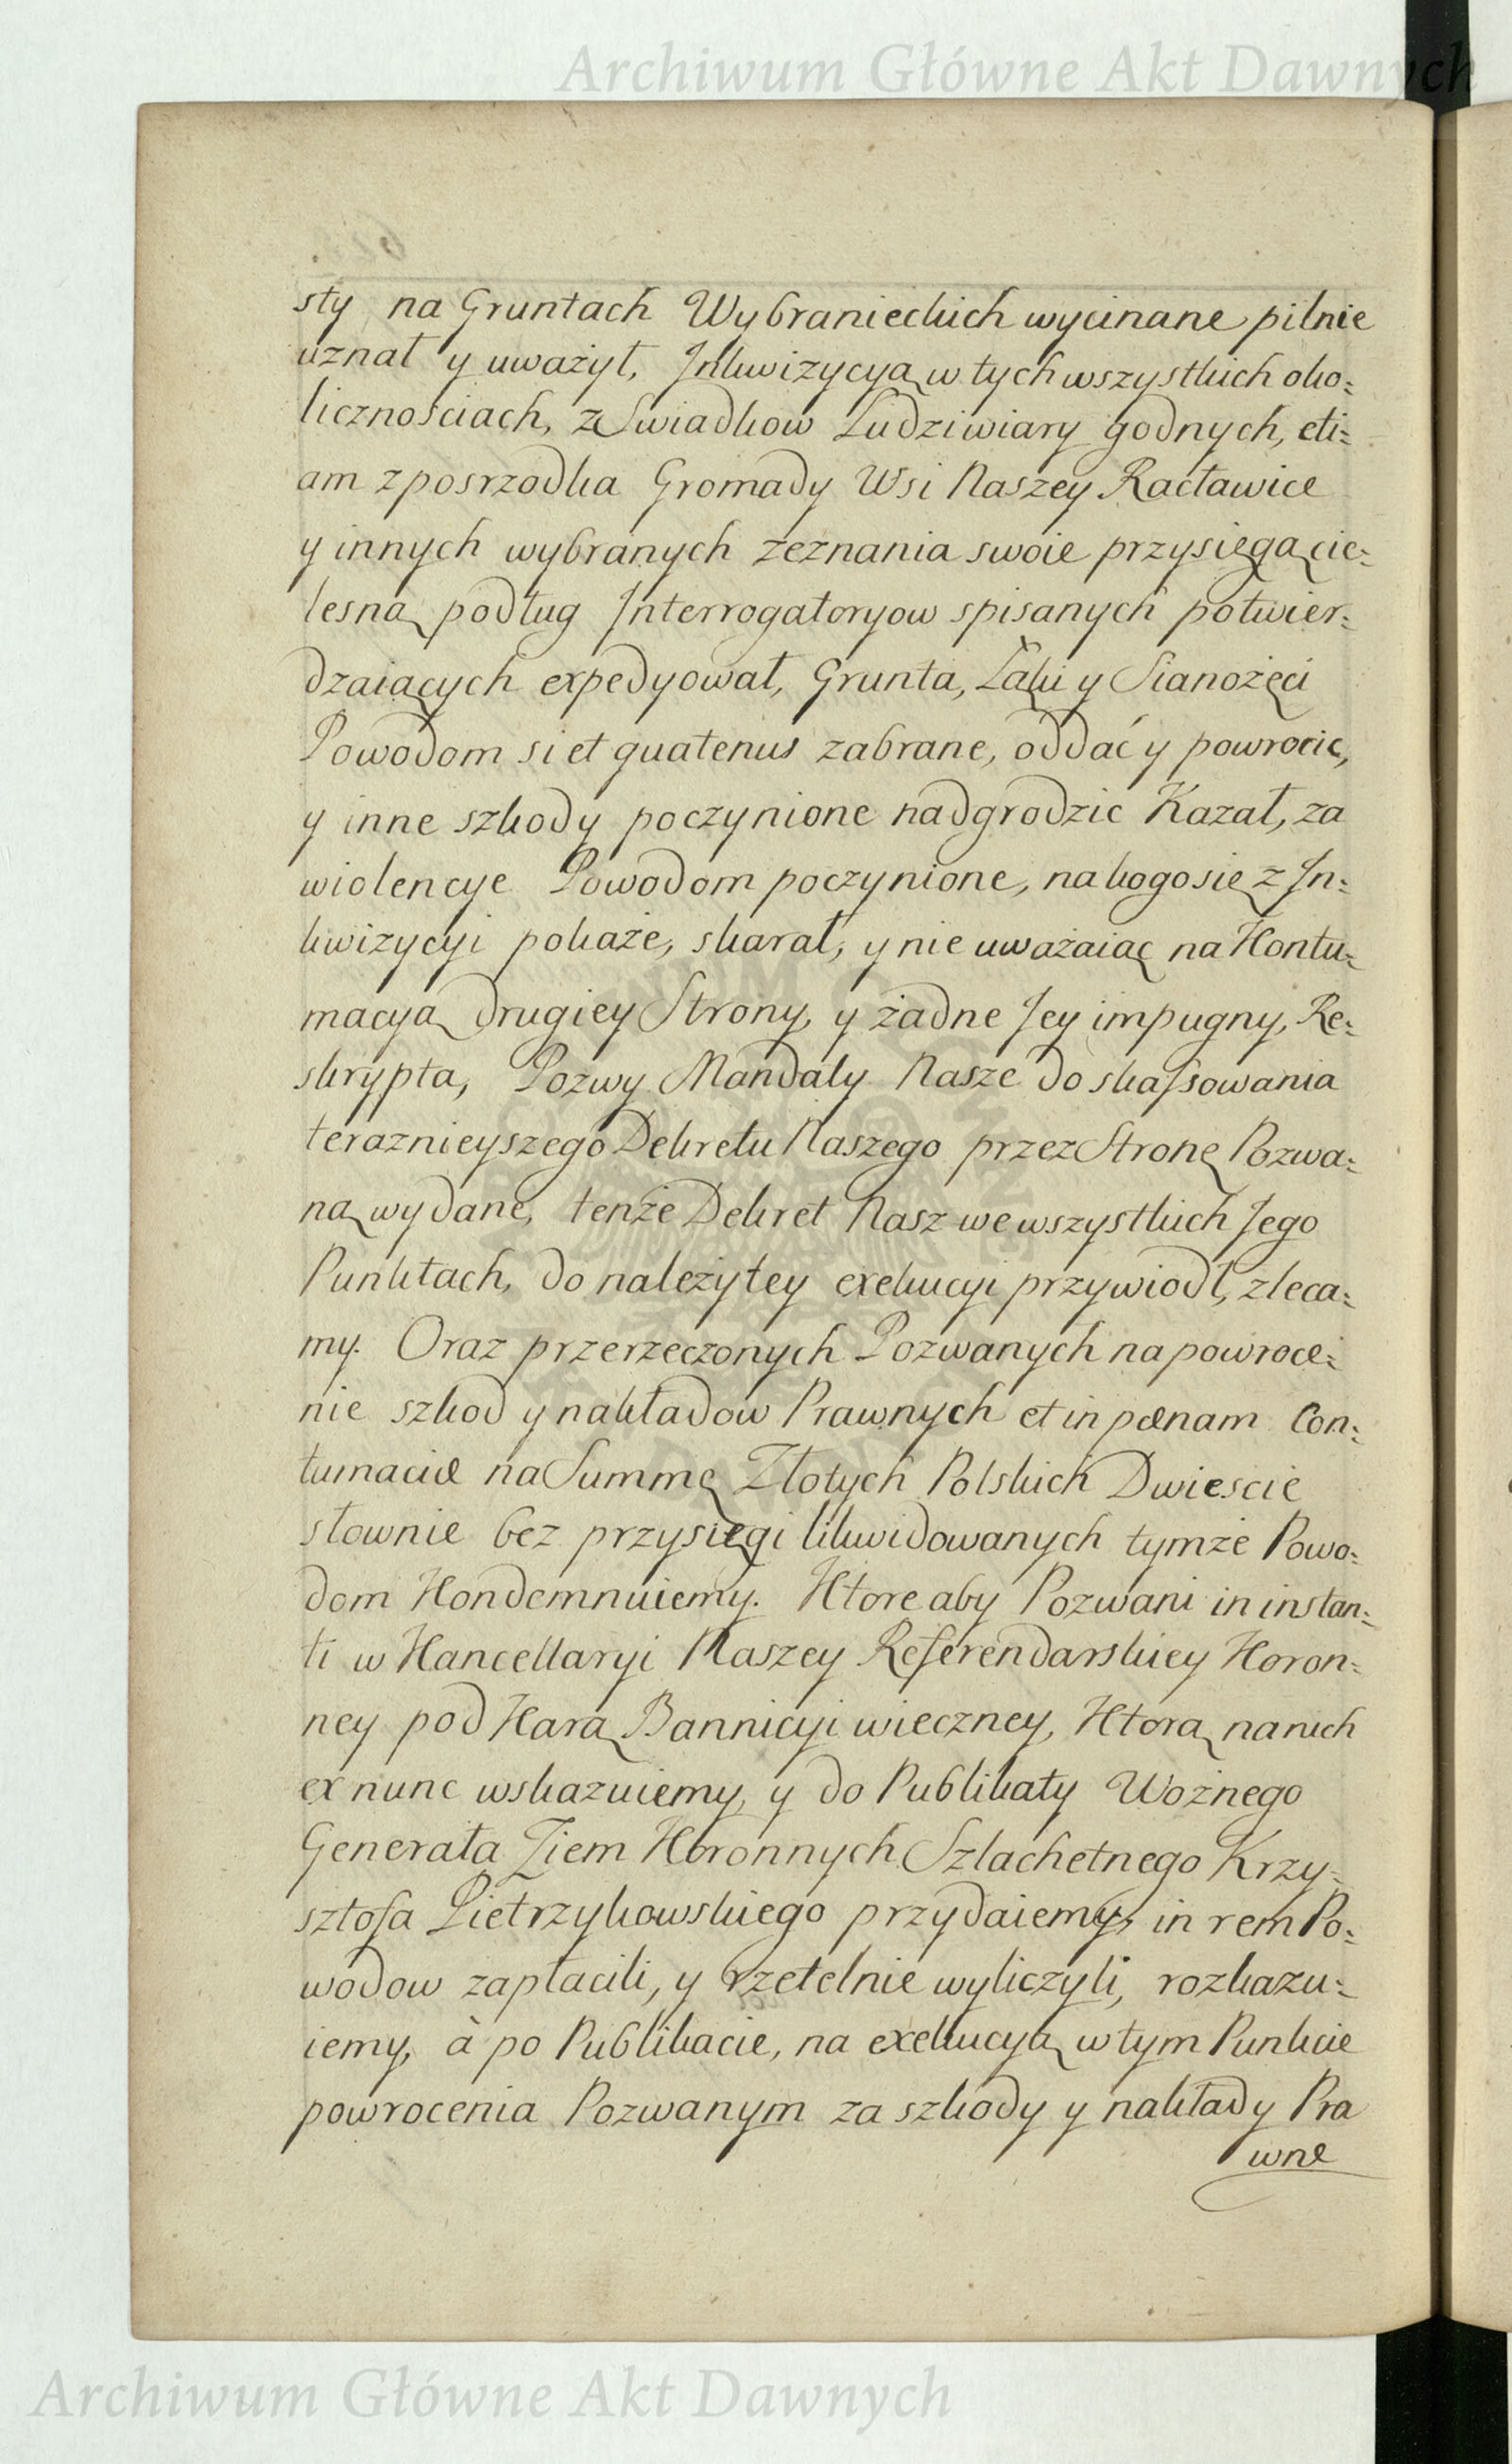 Archiwum Główne Akt Dawnych
sty na Gruntach Wybranieckich wycinane pilnie
uznał y uważył, Inkwizycyą w tych wszystkich oko:
licznościach, z Swiadkow Ludzi wiary godnych, eti:
am z posrzodka Gromady Wsi Naszey Racławice
y innych wybranych zeznania swoie przysięgą cie:
lesną podług Interrogatoryow spisanych potwier:
dzaiących expedyował, Grunta, Łąki y Sianożęci
Powodom si et quatenus zabrane, oddać y powrocic,
y inne szkody poczynione nadgrodzic Kazał, za
wiolencye Powodom poczynione, na kogo się z In:
kwizycyi pokaże, skarał, y nie uważaiąc na Kontu:
macyą drugiey Strony, y żadne Jey impugny, Re:
skrypta, Pozwy Mandaty Nasze do skassowania
teraznieyszego Dekretu Naszego przez Stronę Pozwa:
ną wydane, tenże Dekret Nasz we wszystkich Jego
Punktach, do należytey exekucyi przywiodł, zleca:
my. Oraz przerzeczonych Pozwanych na powroce:
nie szkod y nakładow Prawnych et in pœnam Con:
tumaciæ na Summę Złotych Polskich Dwiescie
słownie bez przysięgi likwidowanych tymże Powo:
dom Kondemnuiemy. Ktore aby Pozwani in instan:
ti w Kancellaryi Naszey Referendarskiey Koron:
ney pod Karą Bannicyi wieczney, Ktorą na nich
ex nunc wskazuiemy, y do Publikaty Woźnego
Generała Ziem Koronnych Szlachetnego Krzy:
sztofa Pietrzykowskiego przydaiemy, in rem Po:
wodow zapłacili, y rzetelnie wyliczyli, rozkazu:
iemy, à po Publikacie, na exekucyą w tym Punkcie
powrocenia Pozwanym za szkody y nakłady Pra
wne
Archiwum Główne Akt Dawnych